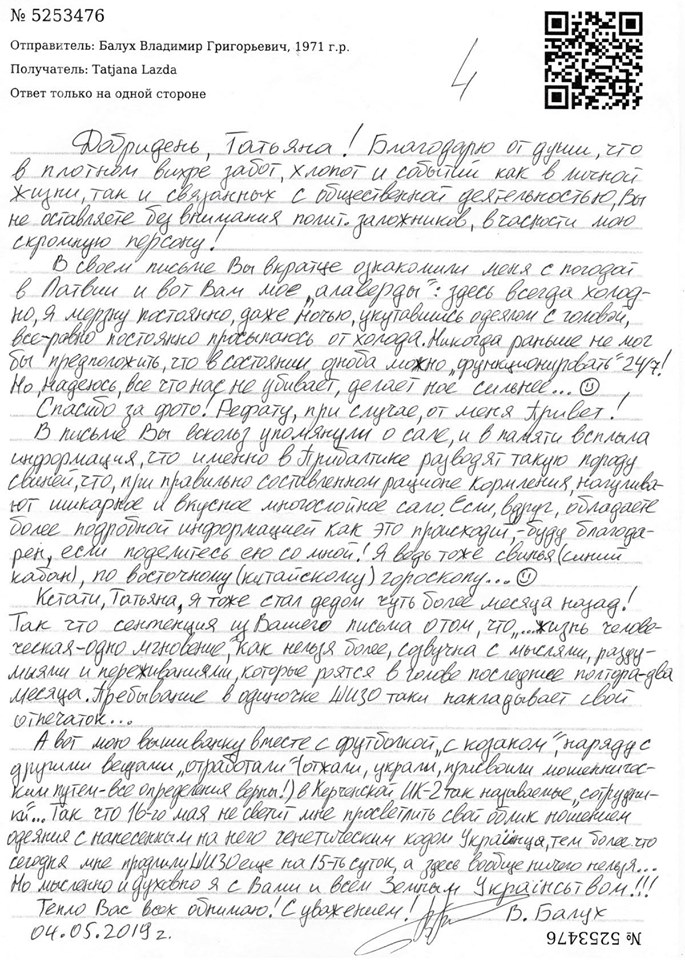 № 5253476
Отправитель: Балух Владимир Григорьевич, 1971 г.р.
Получатель: Tatjana Lazda
Ответ только на одной стороне
4
Добридень, Татьяна! Благодарю от души, что
в плотном вихре забот, хлопот и событий как в личной
жизни, так и связанных с общественной деятельностью, Вы
не оставляете без внимания полит. заложников, в часности мою
скромную персону!
В своем письме Вы вкратце ознакомили меня с погодой
в Латвии и вот Вам мое „алаверды": здесь всегда холод-
но, я мерзну постоянно, даже ночью, укутавшись одеялом с головой,
все-ровно постоянно просыпаюсь от холода. Никогда раньше не мог
бы предположить, что в состоянии озноба можно „функционировать" 24/7!
Но, надеюсь, все что нас не убивает, делает нас сильнее... ☺
Спасибо за фото! Рефату, при случае, от меня Привет!
В письме Вы вскользь упомянули о сале, и в памяти всплыла
информация, что именно в Прибалтике разводят такую породу
свиней, что, при правильно составленном рационе кормления, нагулива-
ют шикарное и вкусное многослойное сало. Если, вдруг, обладаете
более подробной информацией как это происходит, – буду благода-
рен, если поделитесь ею со мной! Я ведь тоже свинья (синий
кабан), по восточному (китайскому) гороскопу... ☺
Кстати, Татьяна, я тоже стал дедом чуть более месяца назад!
Так что сентенция из Вашего письма о том, что „...жизнь челове-
ческая-одно мгновение", как нельзя более, созвучна с мыслями, разду-
миями и переживаниями, которые роятся в голове последнее полтора-два
месяца. Пребывание в одиночке ШИЗО таки накладывает свой
отпечаток...
А вот мою вышиванку вместе с футболкой „с козаком", наряду с
другими вещами „отработали" (отжали, украли, присвоили мошенничес-
ким путем-все определения верны!) в Керченской ИК-2 так называемые „сотрудни-
ки"... Так что 16-го мая не светит мне просветить свой облик ношением
одеяния с нанесенным на него генетическим кодом Українца, тем более что
сегодня мне продлили ШИЗО еще на 15-ть суток, а здесь вообще ничего нельзя...
Но мысленно и духовно я с Вами и всем Земным Українством!!!
Тепло Вас всех обнимаю! С уважением! В. Балух
04.05.2019 г.
№ 5253476